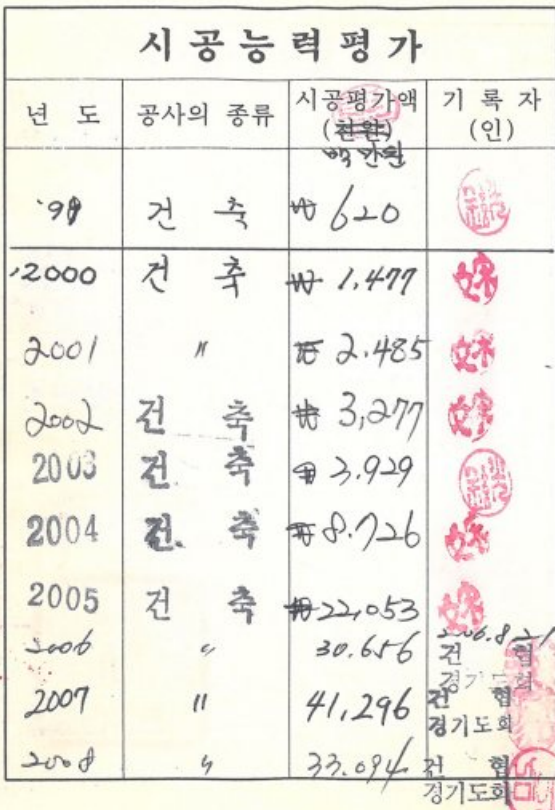 시공능력평가
년 도 공사의 종류 시공평가액 기 록 자
(천원) (인)
백만원
'99 건 축 ₩620
2000 건 축 ₩1,477
2001 〃 ₩2.485
2002 건 축 ₩3,277
2003 건 축 ₩3.929
2004 건 축 ₩8.726
2005 건 축 ₩22,053
2006 〃 30.656 2006.8.21
건 협
경기도회
2007 〃 41,296 건 협
경기도회
2008 〃 33.094 건 협
경기도회